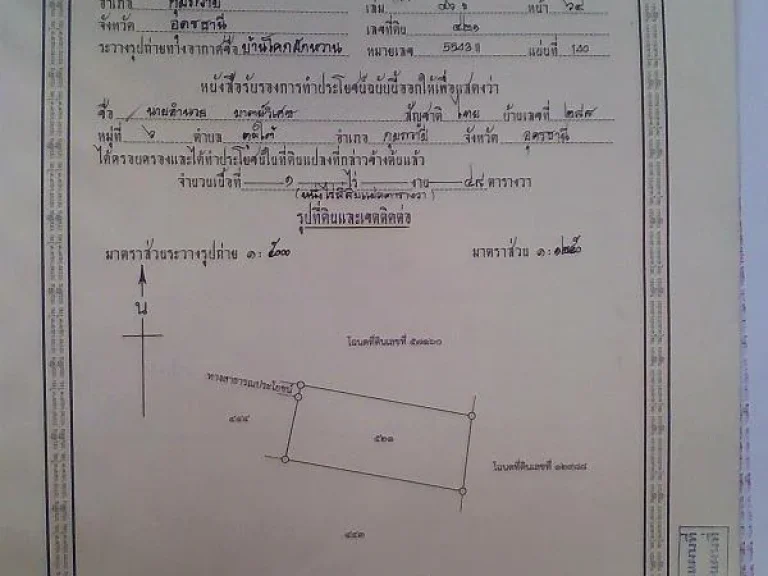 อำเภอ กุมภวาปี เล่ม หน้า ๖๙
จังหวัด อุดรธานี เลขที่ดิน ๔๒๑
ระวางรูปถ่ายทางอากาศชื่อ บ้านโคกผักหวาน หมายเลข 5543 II แผ่นที่ 140
หนังสือรับรองการทำประโยชน์ฉบับนี้ออกให้เพื่อแสดงว่า
ชื่อ นายอำนวย สัญชาติ ไทย บ้านเลขที่ ๒๘๙
หมู่ที่ ๖ ตำบล อำเภอ กุมภวาปี จังหวัด อุดรธานี
ได้ครอบครองและได้ทำประโยชน์ในที่ดินแปลงที่กล่าวข้างต้นแล้ว
จำนวนเนื้อที่ ๑ ไร่ งาน ๔๙ ตารางวา
(หนึ่งไร่สี่สิบเก้าตารางวา)
รูปที่ดินและเขตติดต่อ
มาตราส่วนระวางรูปถ่าย ๑ : ๕๐๐๐ มาตราส่วน ๑ : ๑๒๕๐
น
โฉนดที่ดินเลขที่ ๕๗๑๖๐
ทางสาธารณประโยชน์
๔๔๔
๕๒๑
โฉนดที่ดินเลขที่ ๑๒๙๘๘
๔๔๑
แผ่นที่